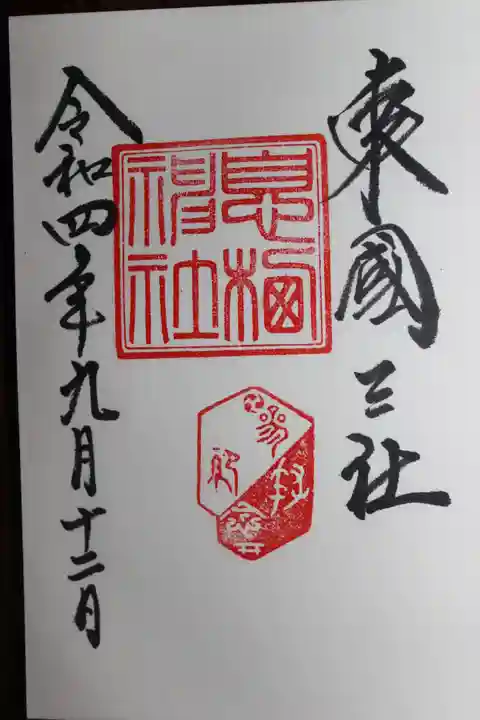 東國三社
息栖神社
参拝
記念
令和四年九月十二日